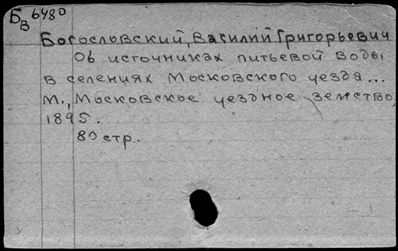 Бв 6480
Богословский, Василий Григорьевич
Об источниках питьевой воды
в селениях Московского уезда...
М., Московское уездное земство,
1895.
80 стр.